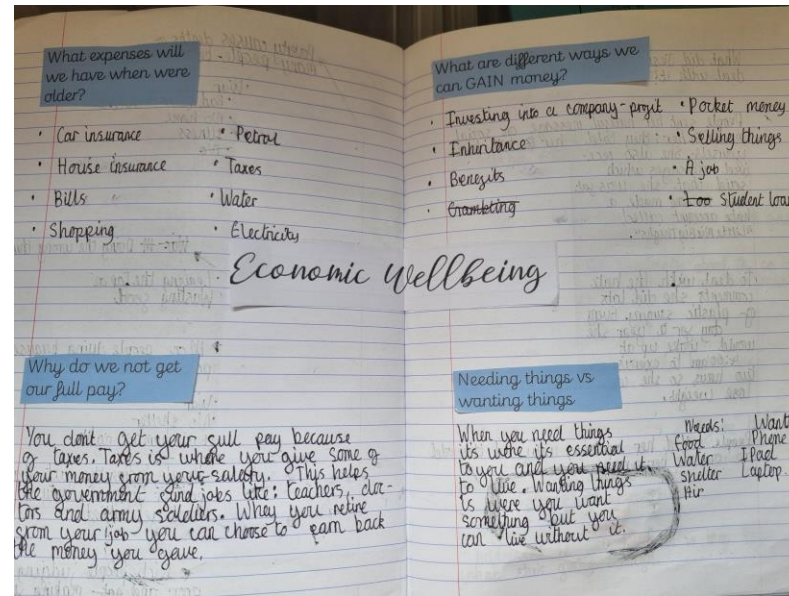 What expenses will
we have when were
older?
· Car insurance
· Petrol
· House insurance
· Taxes
· Bills
· Water
· Shopping
· Electricity
What are different ways we
can GAIN money?
· Investing into a company - profit
· Pocket money
· Inheritance
· Selling things
· Benefits
· A job
· Gambling
· Loo Student loa
Economic Wellbeing
Why do we not get
our full pay?
You don't get your full pay because
of taxes. Taxes is where you give some of
your money from your salary. This helps
the government fund jobs like: teachers, doc-
tors and army soldiers. When you retire
from your job you can choose to earn back
the money you gave.
Needing things vs
wanting things
When you need things
its where its essential
to you and you need it.
to live. Wanting things
is were you want
something but you
can live without it.
Needs:
Food
Water
shelter
Air
Want
Phone
IPad
Laptop.